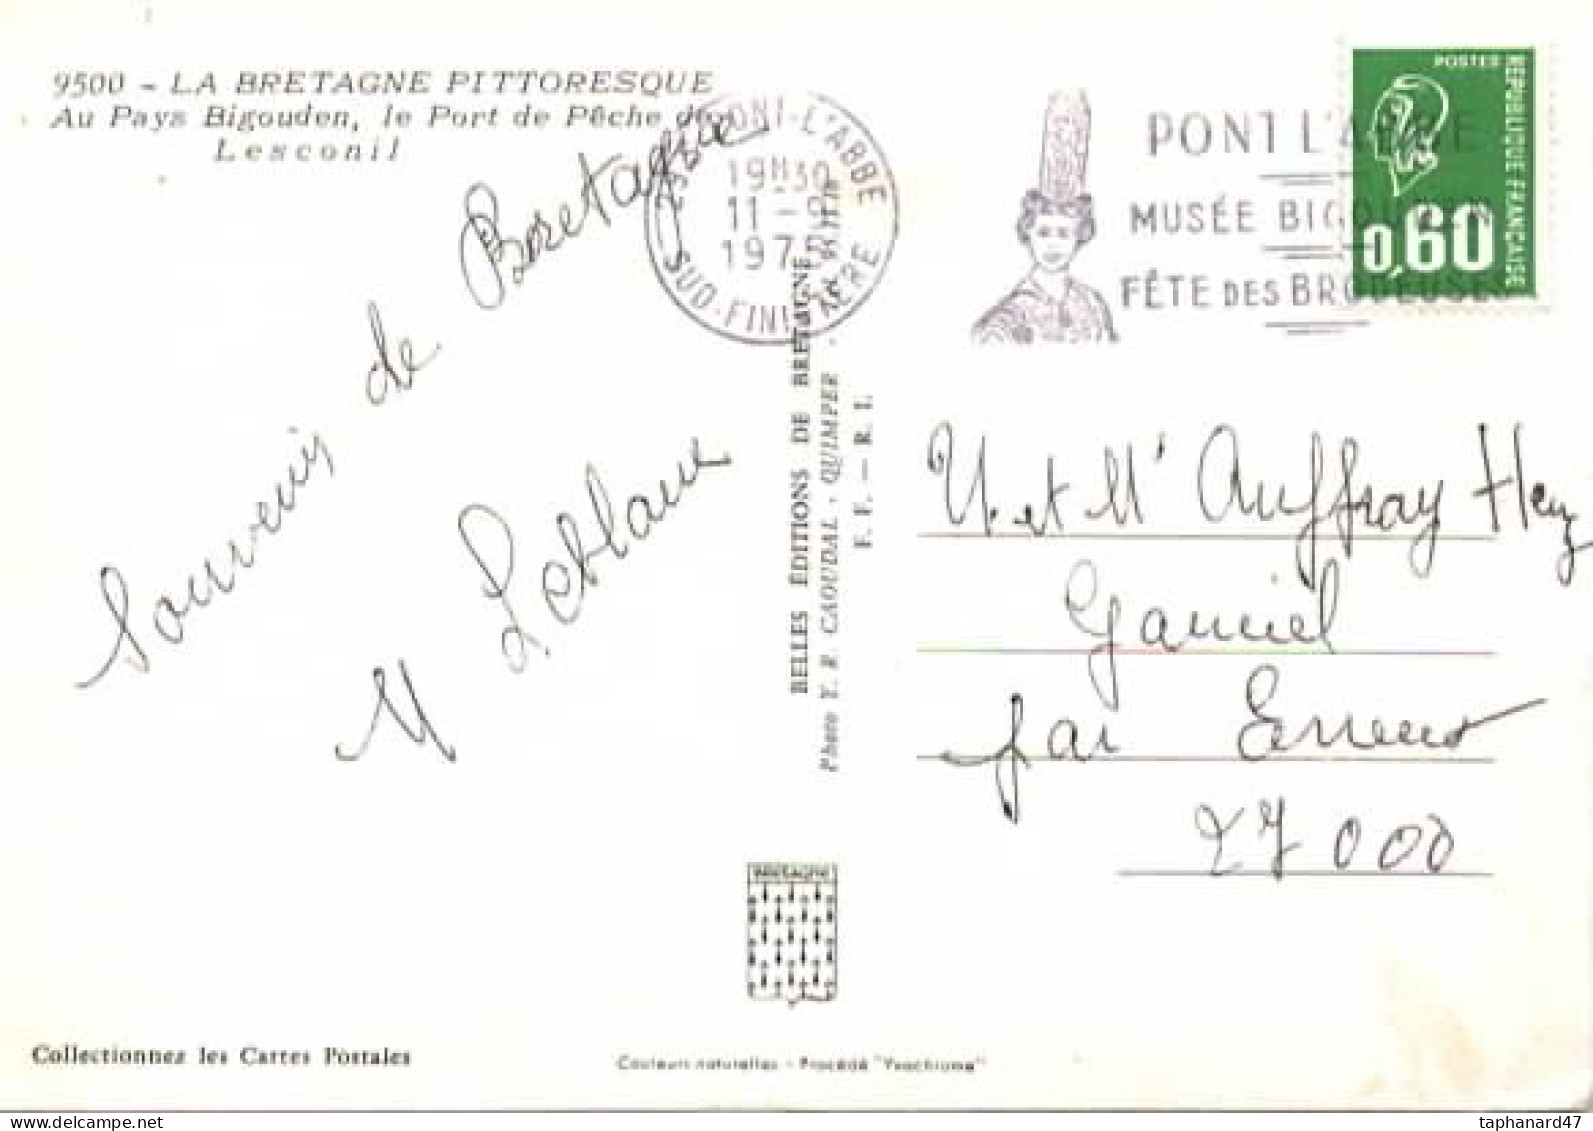 9500 - LA BRETAGNE PITTORESQUE
Au Pays Bigouden, le Port de Pêche de
Lesconil
PONT-L'ABBE
19H30
11 -9
197
SUD-FINISTERE
PONT L'ABBE
MUSÉE BIGOUDEN
FÊTE DES BRODEUSES
POSTES
REPUBLIQUE FRANÇAISE
0,60
Souvenir de Bretagne
M Leblanc
BELLES ÉDITIONS DE BRETAGNE
Photo Y. R. CAOUDAL - QUIMPER
F. F. — R. I.
M. et Mr Auffray
Gauciel
par Evreux
27000
BRETAGNE
Collectionnez les Cartes Postales
Couleurs naturelles - Procédé "Yvochrome"
taphanard47